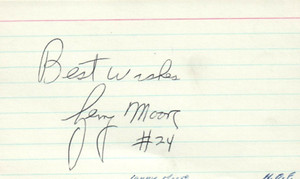 Best wishes
Lenny Moore
#24